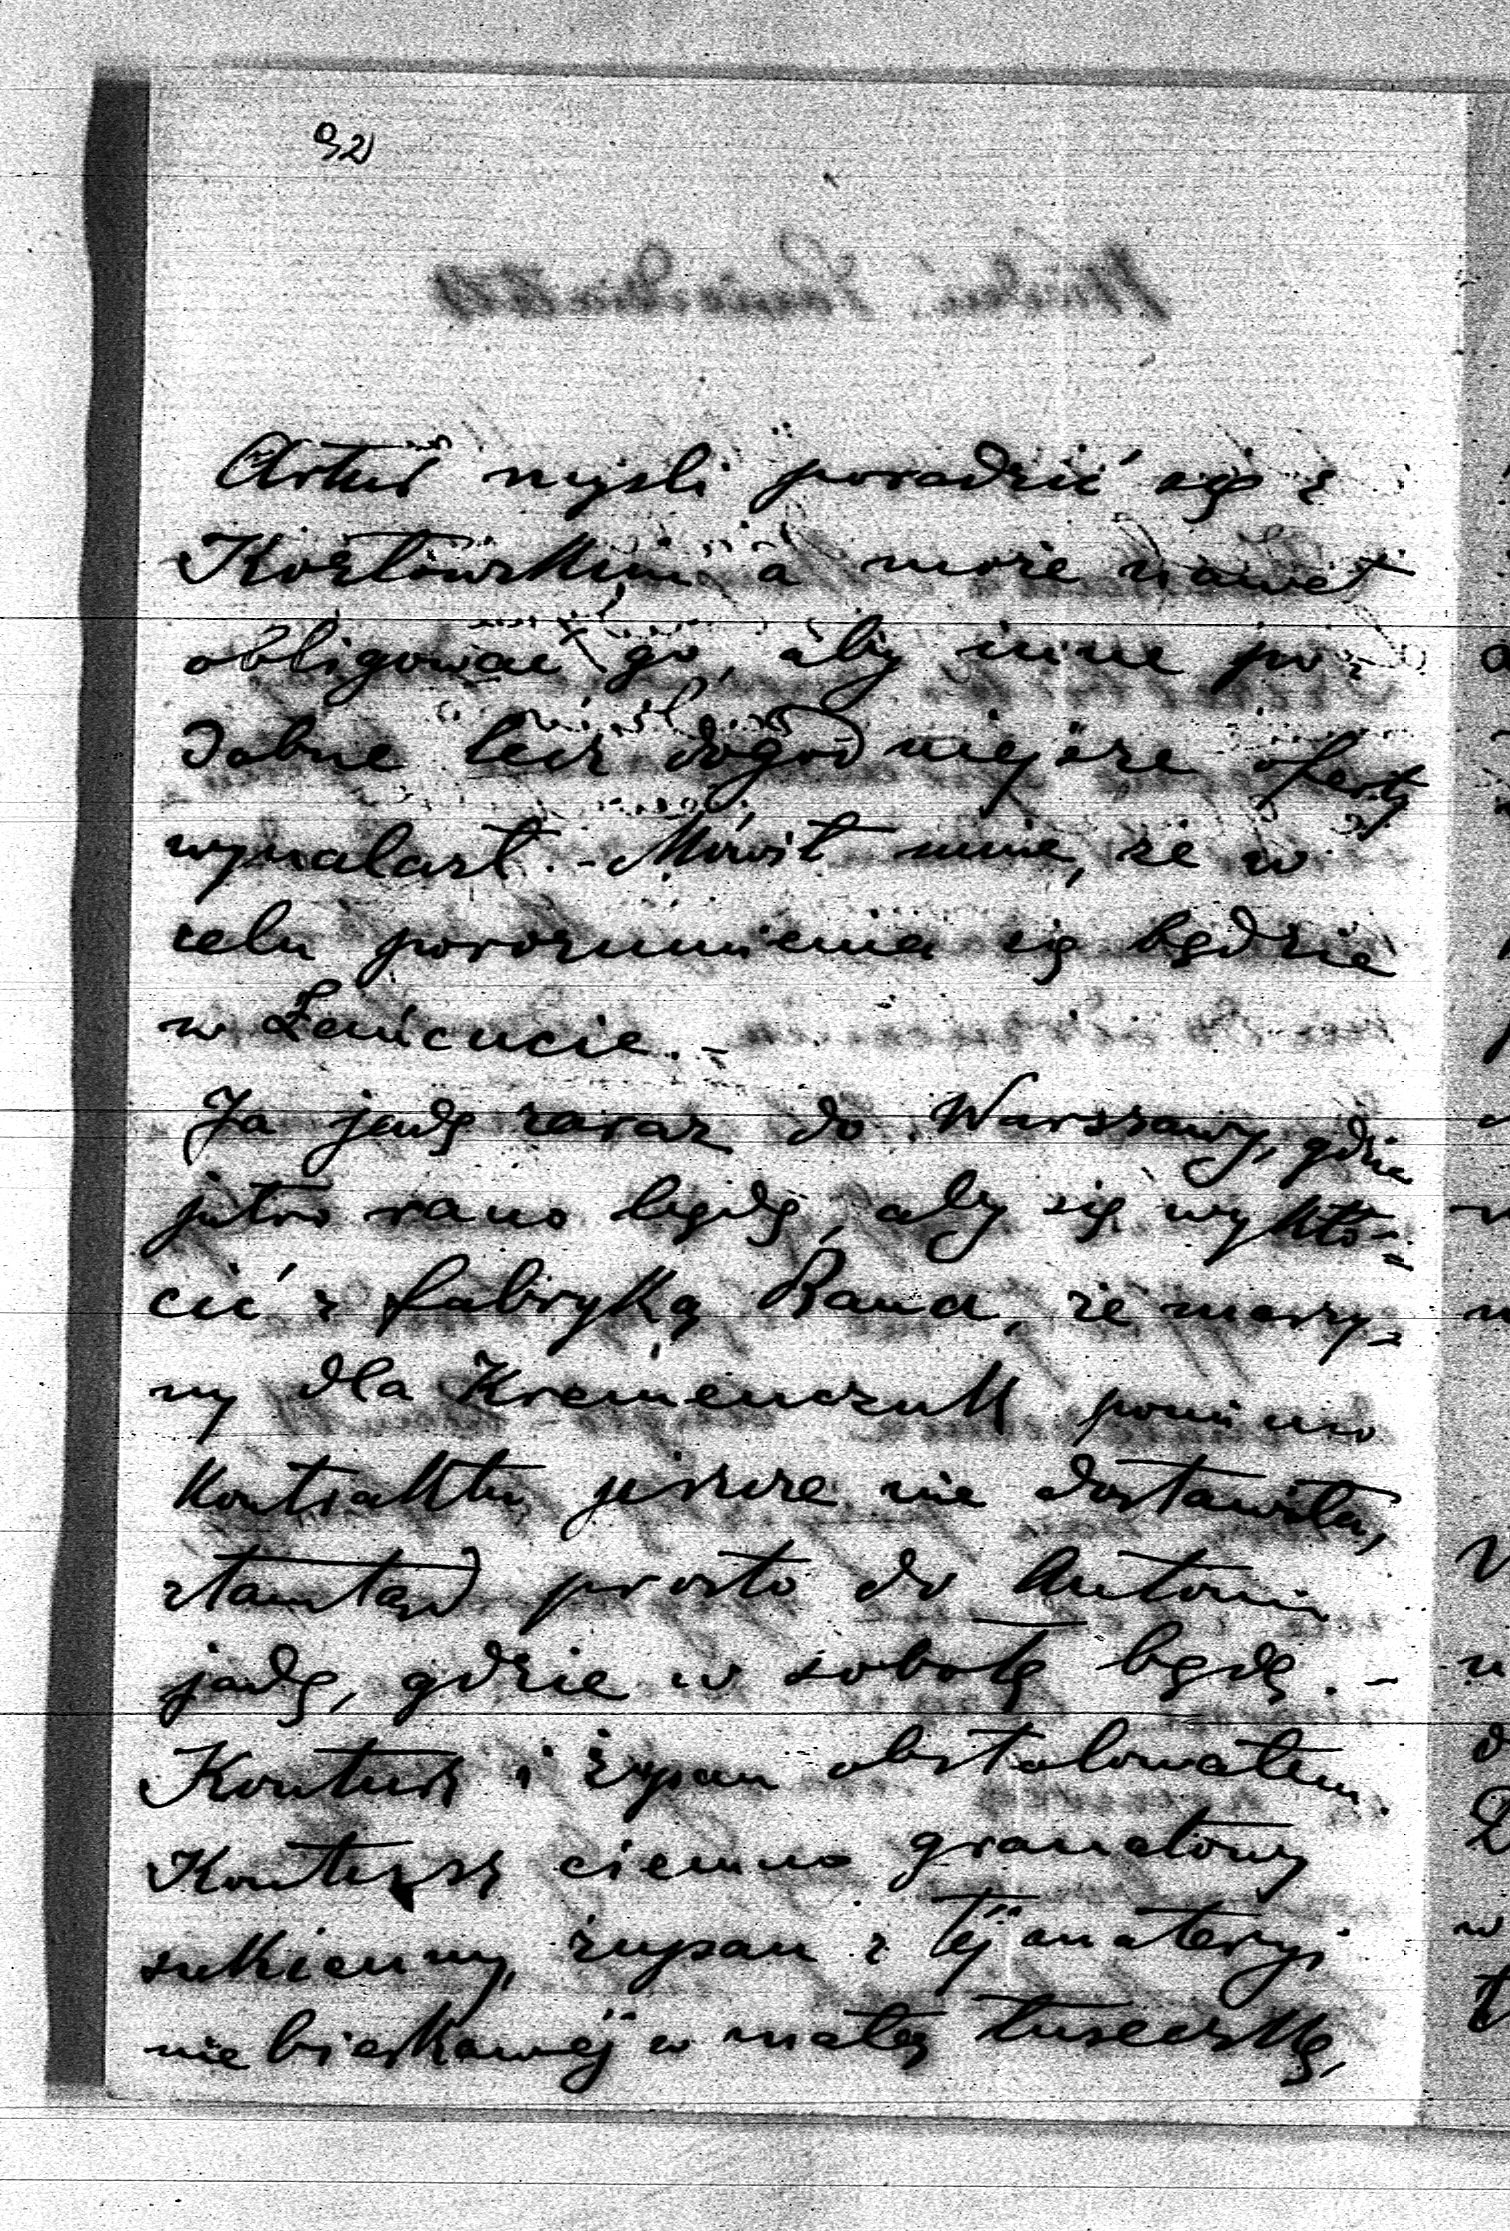 92
Artur myśli poradzić się z
Kozłowskim a może nawet
obligować go, aby inne po-
dobne lecz dogodniejsze oferty
wynalazł. - Mówił mnie, że w
celu porozumienia się będzie
w Łańcucie. -
Ja jadę zaraz do Warszawy, gdzie
jutro rano będę, aby się wykłó-
cić z fabryką Rau̯a, że maszy-
ny dla Kremieńczuk pomimo
kontraktu jeszcze nie dostawiła,
ztamtąd prosto do Antonin
jadę, gdzie w sobotę będę. -
Kontusz i żupan obstalowałem.
Kontusz ciemno granatowy
sukienny, żupan z tej materyi
niebieskawej w małą łuseczkę,